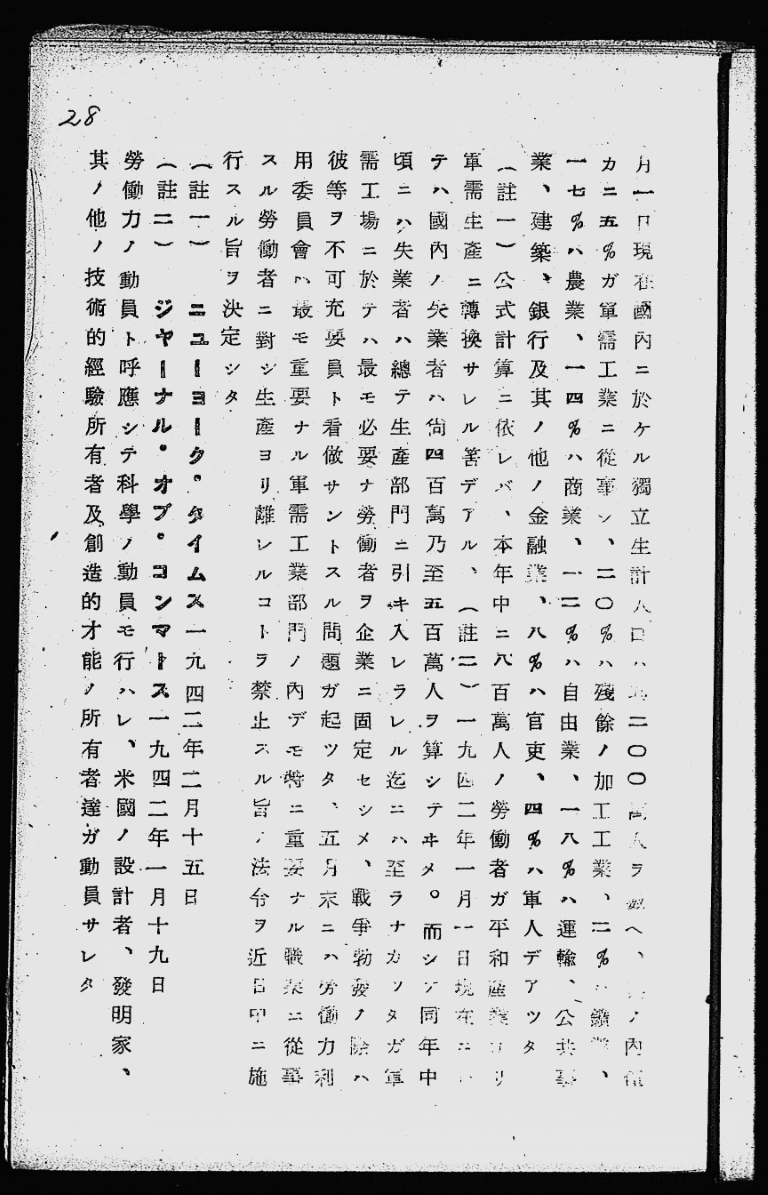 28
月一日現在國內ニ於ケル獨立生計人口ハ 二〇〇萬人ヲ ヘ、 ノ內僅
カニ五%ガ軍需工業ニ從事シ、二〇%ハ殘餘ノ加工工業、二%ハ鑛業、
一七%ハ農業、一四%ハ商業、一二%ハ自由業、一八%ハ運輸、公共事
業、建築、銀行及其ノ他ノ金融業、八%ハ官吏、四%ハ軍人デアツタ
(註一)公式計算ニ依レバ、本年中ニ八百萬人ノ勞働者ガ平和產業ヨリ
軍需生產ニ轉換サレル筈デアル、(註二)一九四二年一月一日現在ニ
テハ國內ノ失業者ハ尙四百萬乃至五百萬人ヲ算シテヰメ。而シテ同年中
頃ニハ失業者ハ總テ生產部門ニ引キ入レラレル迄ニハ至ラナカツタガ軍
需工場ニ於テハ最モ必要ナ勞働者ヲ企業ニ固定セシメ、戰爭勃發ノ際ハ
彼等ヲ不可充要員ト看做サントスル問題ガ起ツタ、五月末ニハ勞働力利
用委員會ハ最モ重要ナル軍需工業部門ノ內デモ特ニ重要ナル職業ニ從事
スル勞働者ニ對シ生產ヨリ離レルコトヲ禁止スル旨ノ法令ヲ近日中ニ施
行スル旨ヲ決定シタ
(註一) ニユーヨーク。タイムス一九四二年二月十五日
(註二) ジヤーナル。オブ。コンマース一九四二年一月十九日
勞働力ノ動員ト呼應シテ科學ノ動員モ行ハレ、米國ノ設計者、發明家、
其ノ他ノ技術的經驗所有者及創造的才能ノ所有者達ガ動員サレタ